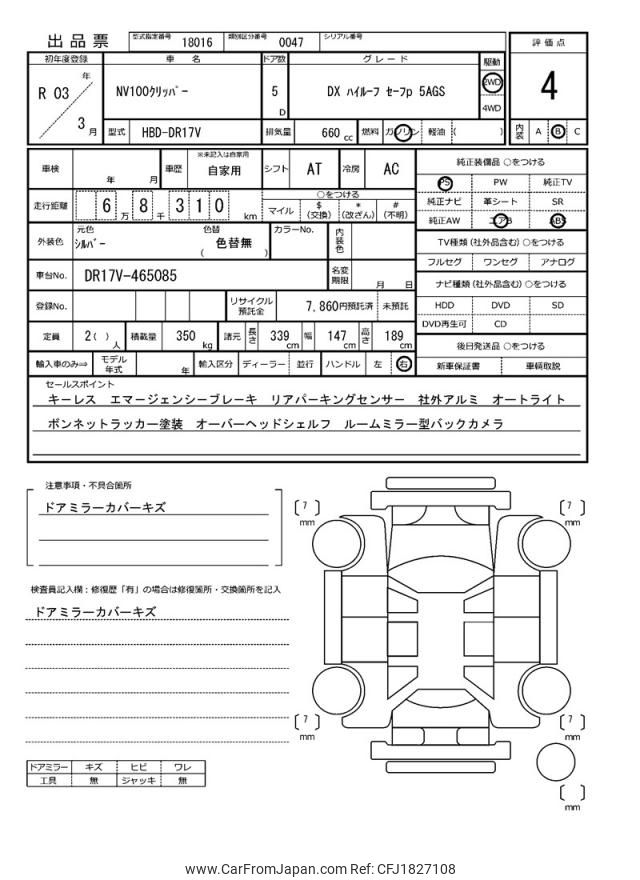 出品票 型式指定番号 18016 類別区分番号 0047 シリアル番号
評価点
初年度登録 車名 ドア数 グレード 駆動
R 03 年 3 月
NV100ｸﾘｯﾊﾟｰ 5 D DX ﾊｲﾙｰﾌ ｾｰﾌp 5AGS
2WD
4WD
4
型式 HBD-DR17V 排気量 660 cc 燃料 ガソリン 軽油 ( )
内装 A B C
車検 年 月 車歴 ※未記入は自家用 自家用 シフト AT 冷房 AC
純正装備品 ○をつける
PS PW 純正TV
純正ナビ 革シート SR
純正AW エアB ABS
走行距離 6 万 8 千 3 1 0 km
○をつける
マイル $ (交換) * (改ざん) # (不明)
外装色 元色 ｼﾙﾊﾞｰ 色替 ( 色替無 ) カラーNo. 内装色
TV種類 (社外品含む) ○をつける
フルセグ ワンセグ アナログ
車台No. DR17V-465085 名変期限 月 日
ナビ種類 (社外品含む) ○をつける
HDD DVD SD
DVD再生可 CD
登録No. リサイクル預託金 7,860円預託済 未預託
定員 2( ) 人 積載量 350 kg 諸元 長さ 339 cm 幅 147 cm 高さ 189 cm
後日発送品 ○をつける
新車保証書 車輌取説
輸入車のみ⇒ モデル年式 年 輸入区分 ディーラー 並行 ハンドル 左 右
セールスポイント
キーレス エマージェンシーブレーキ リアパーキングセンサー 社外アルミ オートライト
ボンネットラッカー塗装 オーバーヘッドシェルフ ルームミラー型バックカメラ
注意事項・不具合箇所
ドアミラーカバーキズ
検査員記入欄：修復歴「有」の場合は修復箇所・交換箇所を記入
ドアミラーカバーキズ
[ 7 ] mm
[ 7 ] mm
[ 7 ] mm
[ 7 ] mm
[ ] mm
ドアミラー キズ ヒビ ワレ
工具 無 ジャッキ 無
www.CarFromJapan.com Ref: CFJ1827108